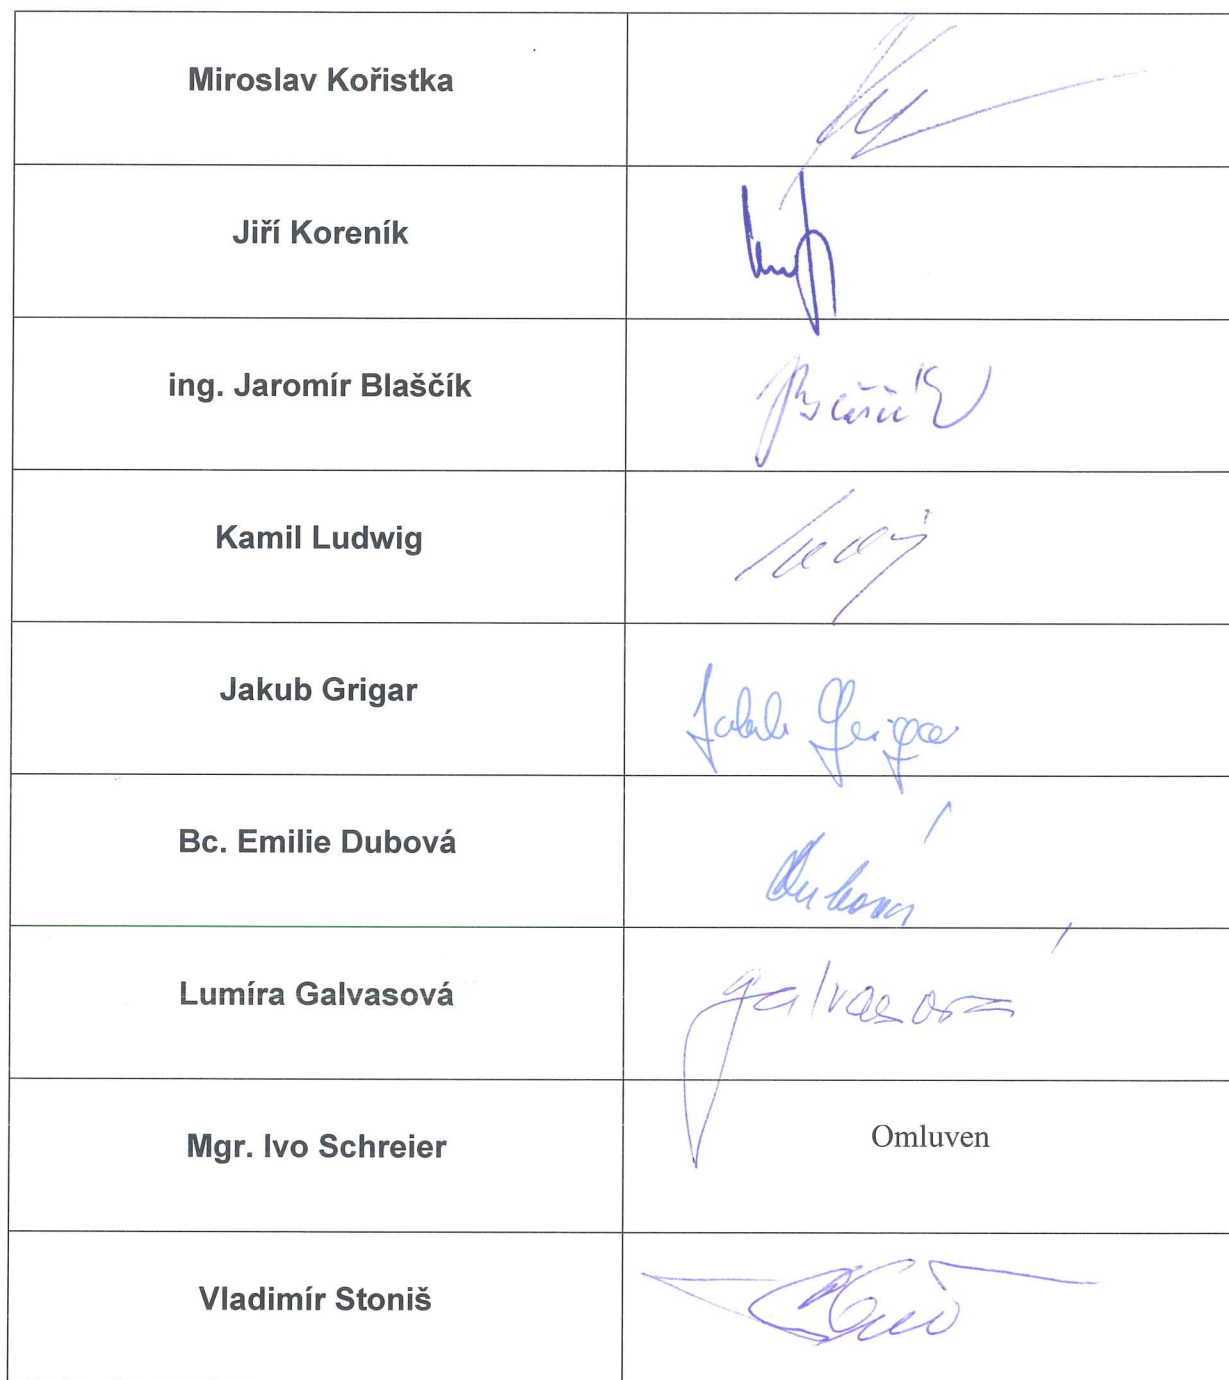 Miroslav Kořistka
Jiří Koreník
ing. Jaromír Blaščík
Kamil Ludwig
Jakub Grigar
Jakub Grigar
Bc. Emilie Dubová
Dubová
Lumíra Galvasová
galvasová
Mgr. Ivo Schreier
Omluven
Vladimír Stoniš